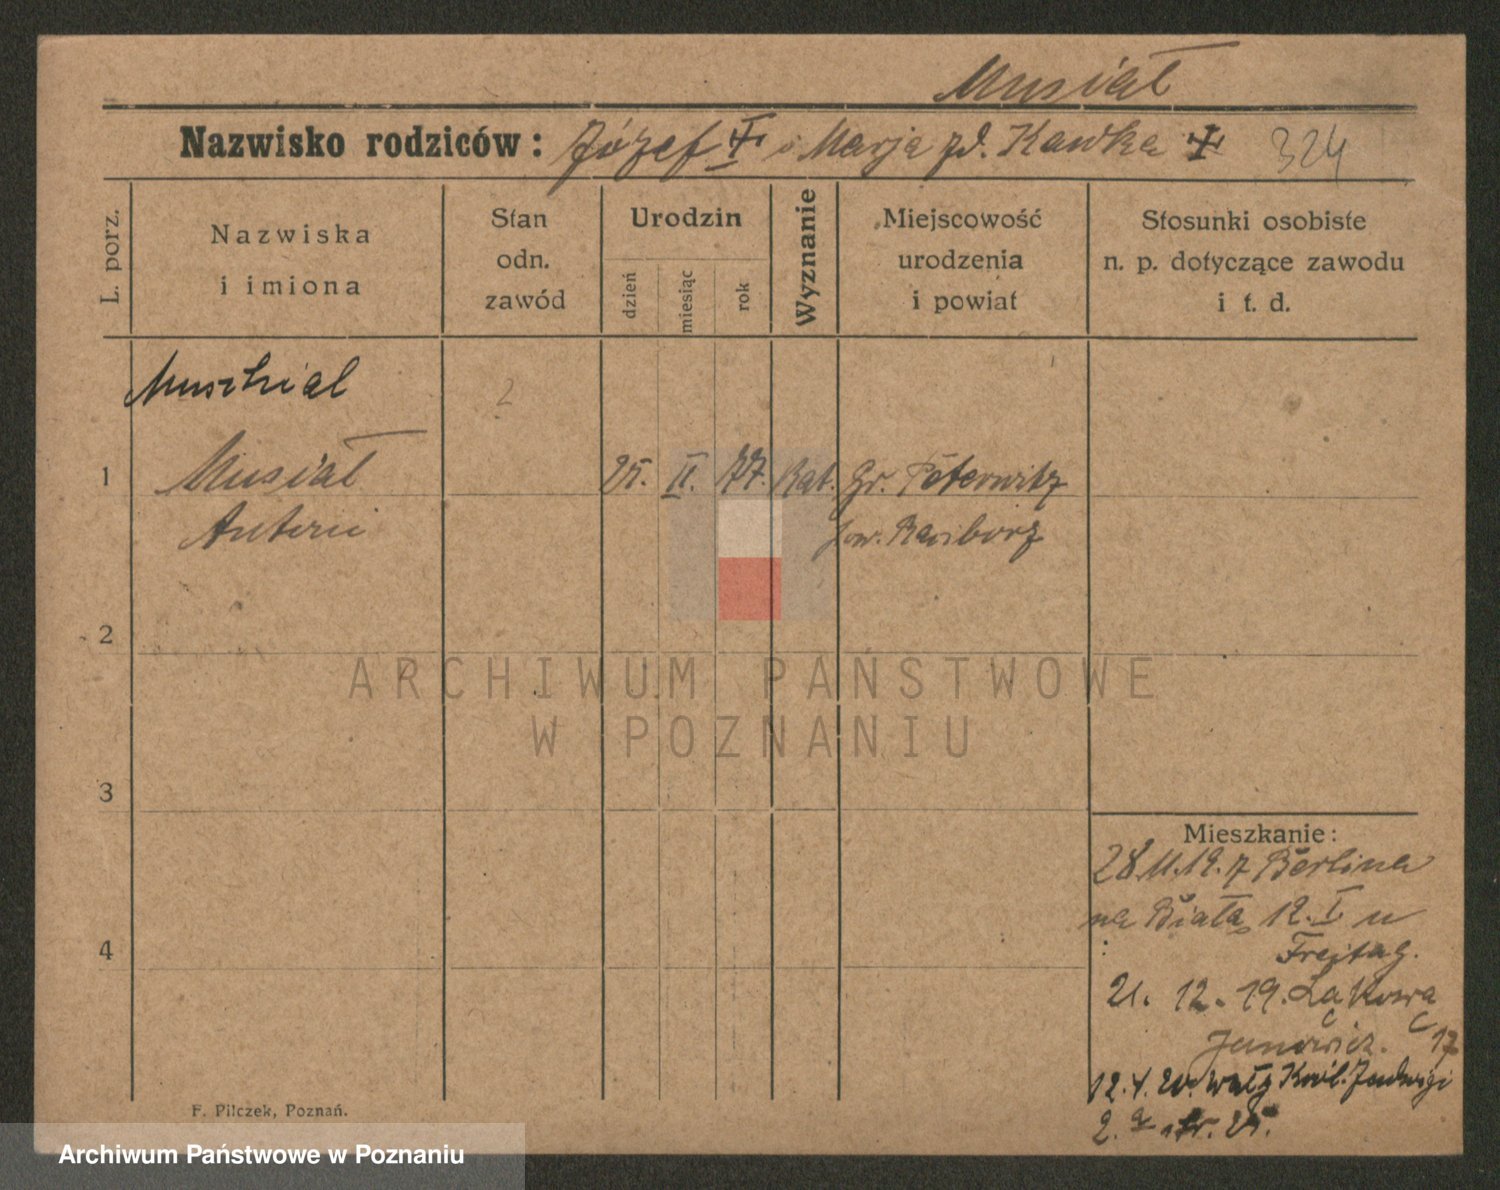 Musiał
Nazwisko rodziców: Józef ✝ i Marja zd. Kawka ✝ 324
L. porz.
Nazwiska
i imiona
Stan
odn.
zawód
Urodzin
dzień
miesiąc
rok
Wyznanie
Miejscowość
urodzenia
i powiat
Stosunki osobiste
n. p. dotyczące zawodu
i t. d.
Muschial
2
1 Musiał 25. II. 77. Kat. Gr. Peterwitz
Antoni pow. Racibórz
2
3
4
ARCHIWUM PAŃSTWOWE
W POZNANIU
Mieszkanie:
28.11.19. z Berlina
na Białą 12. I u
Freitag.
21. 12. 19. Łąkowa
17
12.4.20. Wały Król. Jadwigi
2.
F. Pilczek, Poznań.
Archiwum Państwowe w Poznaniu